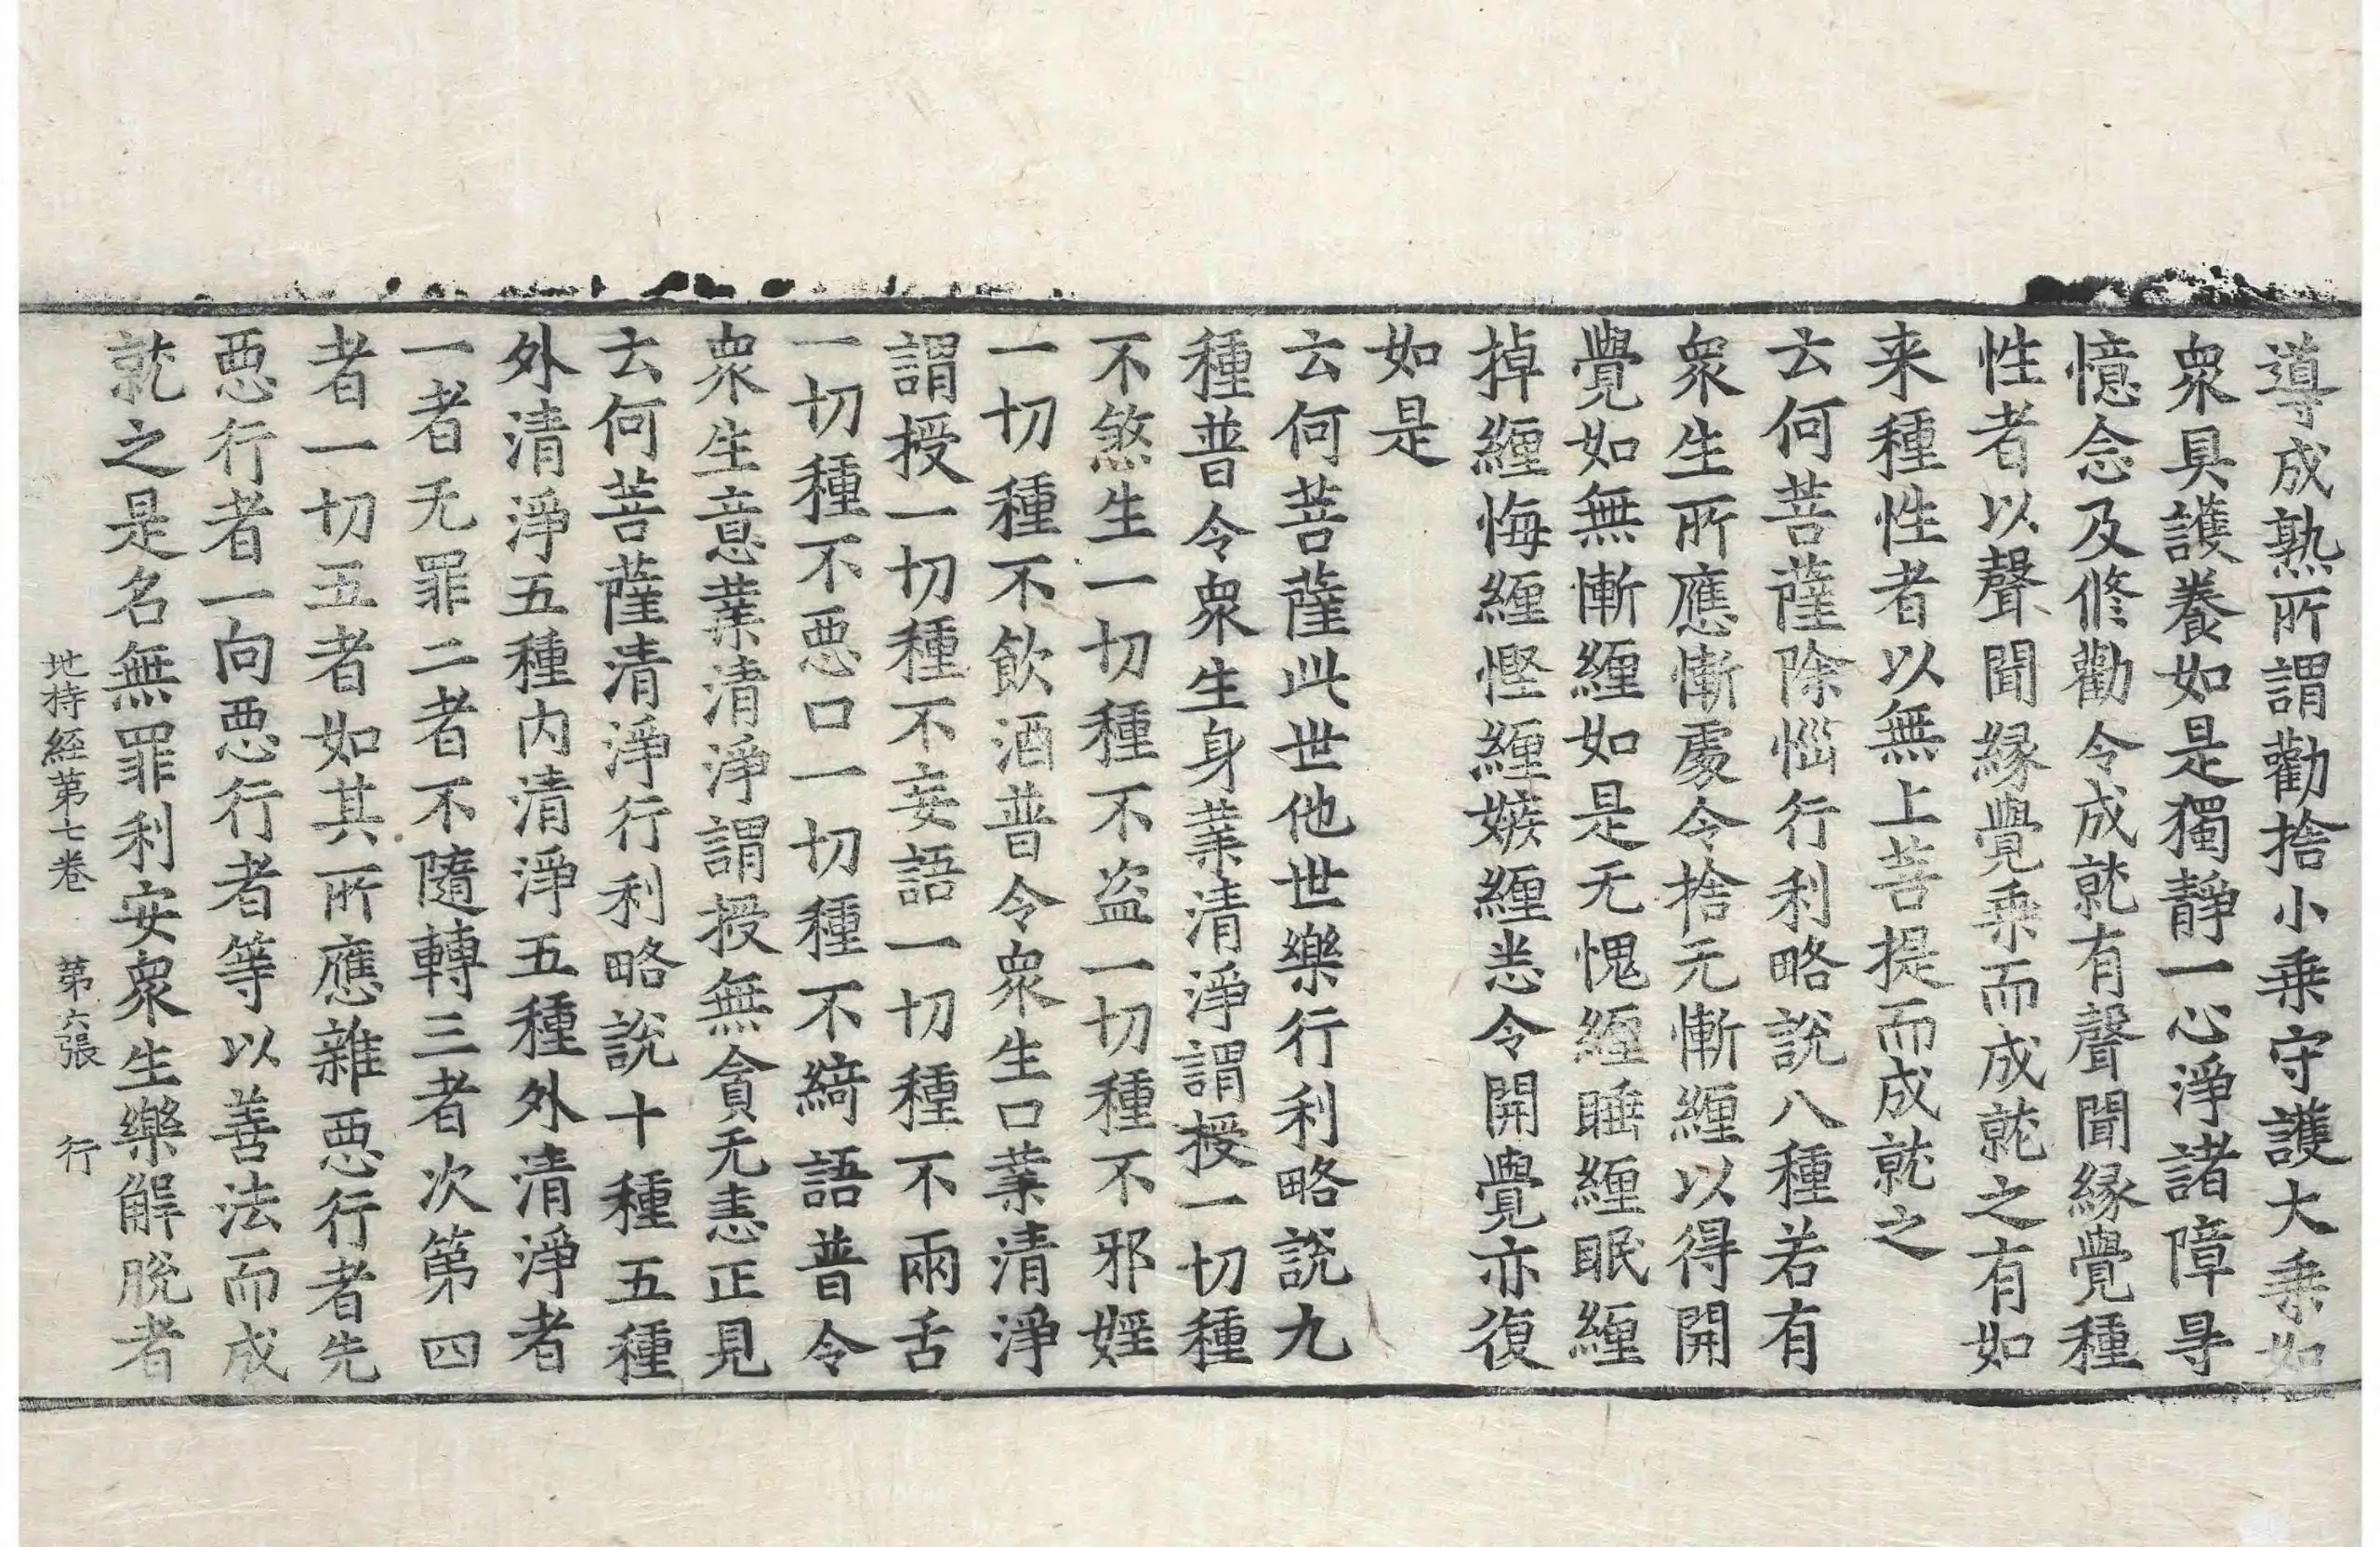 導成熟所謂勸捨小乗守護大乗如
衆具護養如是獨静一心淨諸障㝵
憶念及修勸令成就有聲聞縁覺種
性者以聲聞縁覺乗而成就之有如
来種性者以無上菩提而成就之
云何菩薩除惱行利略說八種若有
衆生所應慚處令捨无慚纏以得開
覺如無慚纏如是无愧纏睡纏眠纏
掉纏悔纏慳纏嫉纏悉令開覺亦復
如是
云何菩薩此世他世樂行利略說九
種普令衆生身業清淨謂授一切種
不煞生一切種不盗一切種不邪婬
一切種不飲酒普令衆生口業清淨
謂授一切種不妄語一切種不兩舌
一切種不惡口一切種不綺語普令
衆生意業清淨謂授無貪无恚正見
云何菩薩清淨行利略說十種五種
外清淨五種内清淨五種外清淨者
一者无罪二者不隨轉三者次第四
者一切五者如其所應離惡行者先
惡行者一向惡行者等以善法而成
就之是名無罪利安衆生樂解脫者
地持經第七卷 第六張 行